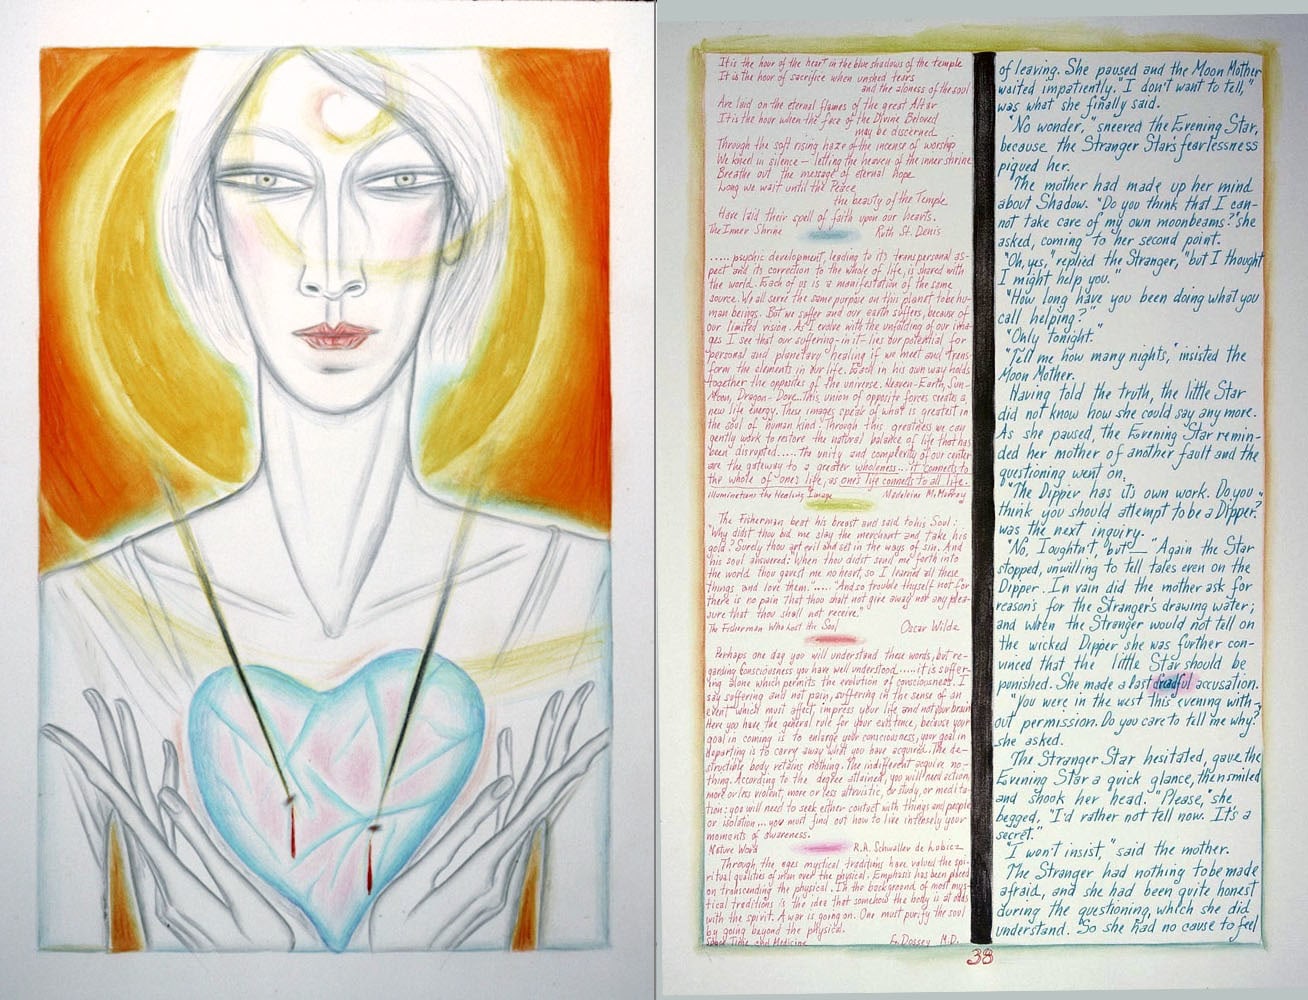 It is the hour of the heart in the blue shadows of the temple
It is the hour of sacrifice when unshed tears
and the aloness of the soul
Are laid on the eternal flames of the great Altar
It is the hour when the face of the Divine Beloved
may be discerned
Through the soft rising haze of the incense of worship
We kneel in silence — letting the heaven of the inner shrine
Breathe out the message of eternal hope
Long we wait until the Peace
the beauty of the Temple
Have laid their spell of faith upon our hearts.
The Inner Shrine Ruth St. Denis
..... psychic development, leading to its transpersonal as-
pect and its correction to the whole of life, is shared with
the world. Each of us is a manifestation of the same
source. We all serve the same purpose on this planet to be hu-
man beings. But we suffer and our earth suffers, because of
our limited vision. As I evolve with the unfolding of our ima-
ges I see that our suffering - in it - lies our potential for
personal and planetary healing if we meet and trans-
form the elements in our life. Each in his own way holds
together the opposites of the universe. Heaven-Earth, Sun-
Moon, Dragon-Dove. This union of opposite forces creates a
new life energy. These images speak of what is greatest in
the soul of human kind. Through this greatness we can
gently work to restore the natural balance of life that has
been disrupted..... The unity and complexity of our center
are the gateway to a greater wholeness... it connects to
the whole of one's life, as one's life connects to all life.
Illuminations the Healing Image Madeleine McMurray
The Fisherman beat his breast and said to his Soul:
"Why didst thou bid me slay the merchant and take his
gold? Surely thou art evil and set in the ways of sin. And
his soul answered: "When thou didst send me forth into
the world thou gavest me no heart, so I learned all these
things and love them."..... "And so trouble thyself not for
there is no pain that thou shalt not give away nor any plea-
sure that thou shalt not receive."
The Fisherman Who Lost His Soul Oscar Wilde
Perhaps one day you will understand these words, but re-
garding Consciousness you have well understood.....it is suffer-
ing alone which permits the evolution of consciousness. I
say suffering and not pain, suffering in the sense of an
event which must affect, impress your life and not your brain
Here you have the general rule for your existence, because your
goal in coming is to enlarge your consciousness, your goal in
departing is to carry away what you have acquired.. The de-
structible body retains nothing. The indifferent acquire no-
thing. According to the degree attained, you will need action,
more or less violent, more or less altruistic, or study, or medita-
tion: you will need to seek either contact with things and people
or isolation... you must find out how to live intensely your
moments of awareness.
Nature Word R.A. Schwaller de Lubicz
Through the ages mystical traditions have valued the spi-
ritual qualities of man over the physical. Emphasis has been placed
on transcending the physical. In the background of most mys-
tical traditions is the idea that somehow the body is at odds
with the spirit. A war is going on. One must purify the soul
by going beyond the physical.
Space Time and Medicine L. Dossey M.D.
of leaving. She paused and the Moon Mother
waited impatiently. "I don't want to tell,"
was what she finally said.
"No wonder," sneered the Evening Star,
because the Stranger Star's fearlessness
piqued her.
The mother had made up her mind
about Shadow. "Do you think that I can-
not take care of my own moonbeams?" she
asked, coming to her second point.
"Oh, yes," replied the Stranger, "but I thought
I might help you."
"How long have you been doing what you
call helping?"
"Only tonight."
"Tell me how many nights," insisted the
Moon Mother.
Having told the truth, the little Star
did not know how she could say any more.
As she paused, the Evening Star remin-
ded her mother of another fault and the
questioning went on.
"The Dipper has its own work. Do you
think you should attempt to be a Dipper?"
was the next inquiry.
"No, I oughtn't, but—" Again the Star
stopped, unwilling to tell tales even on the
Dipper. In vain did the mother ask for
reason's for the Stranger's drawing water;
and when the Stranger would not tell on
the wicked Dipper she was further con-
vinced that the little Star should be
punished. She made a last dreadful accusation.
"You were in the west this evening with-
out permission. Do you care to tell me why?"
she asked.
The Stranger Star hesitated, gave the
Evening Star a quick glance, then smiled
and shook her head. "Please," she
begged, "I'd rather not tell now. It's a
secret."
"I won't insist," said the mother.
The Stranger had nothing to be made
afraid, and she had been quite honest
during the questioning, which she did
understand. So she had no cause to feel
38